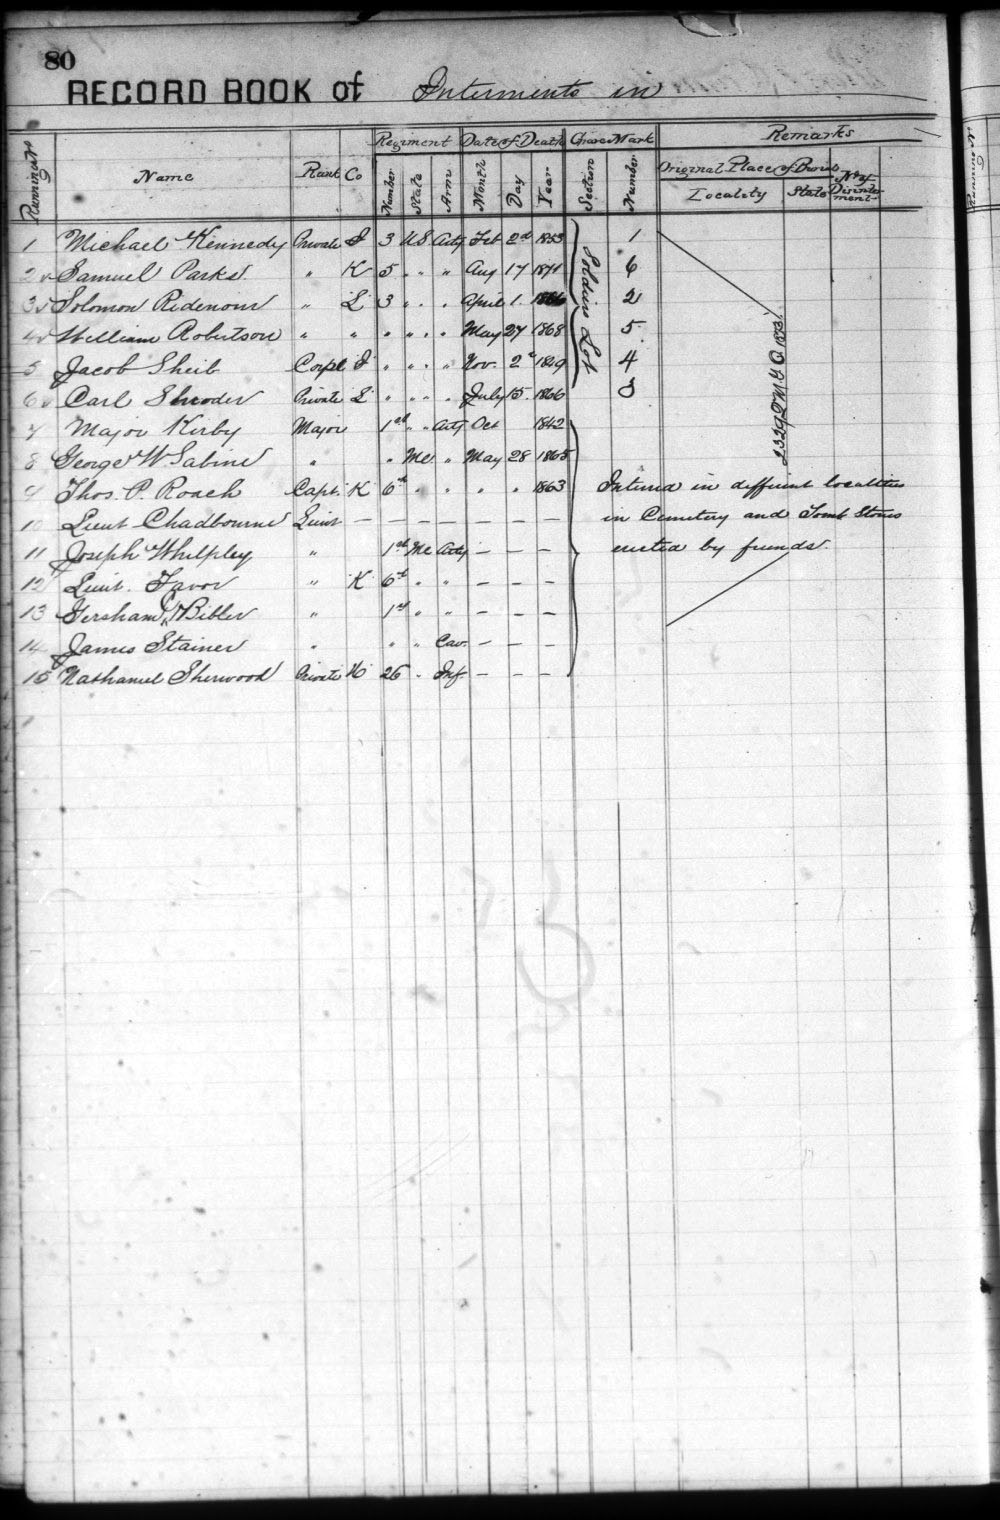 80
RECORD BOOK of Interments in
Running No
Name
Rank Co
Regiment Date of Death Grave Mark Remarks
Number State Arm Month Day Year Section Number
Original Place of Burial
Locality State
1 Michael Kennedy Private I 3 US Arty Feb 2d 1853 1
2 v Samuel Parks " K 5 " " Aug 17 1871 6
3 v Solomon Ridenour " L 3 " " April 1 2
4 v William Robertson " " " " " May 27 1868 5
5 Jacob Sheib Corpl I " " " Nov. 2d 1849 4
6 v Carl Shroder Private L " " " July 15 1866 3
Soldiers Lot
2329 Q.M.G.O. 1893.
7 Major Kirby Major 1st " Arty Oct 1842
8 George W. Sabine " " Me " May 28 1865
9 Thos. P. Roach Capt. K 6th " " " " 1863 Interred in different localities
10 Lieut Chadbourne Lieut — — — — — — in Cemetery and Tomb Stones
11 Joseph Whelpley " 1st Me Arty — — — erected by friends.
12 Lieut. Favor " K 6th " " — — —
13 Gersham Bibber " 1st " " — — —
14 James Stainer " " " Cav. — — —
15 Nathaniel Sherwood Private H 26 " Inf — — —
Running No